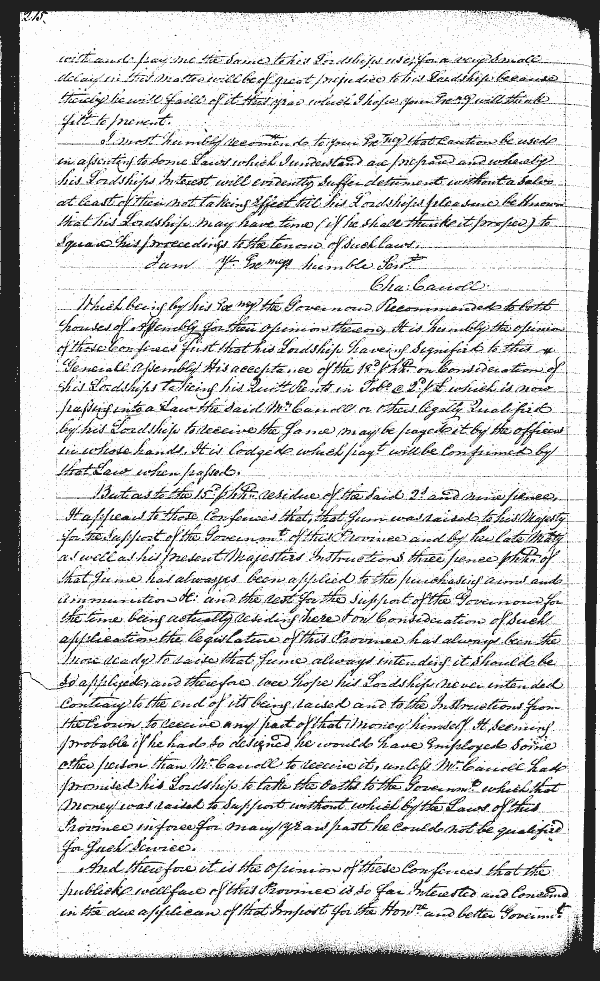 215.
with and pay me the same to his Lordships use, for a very Small
delay in this matter will be of great prejudice to his Lordship because
thereby he will faill of it this year which I hope your Exncy will think
fitt to prevent.
I most humbly recomend to your Exncy that Caution be used
in assenting to some Laws which I understand are prepared and whereby
his Lordships Interest will evidently Suffer detriment without a Salvo
at least of their not taking Effect till his Lordships pleasure be known
that his Lordship may have time (if he shall thinke it proper) to
Square his proceedings to the tenour of such laws.
I am Yr. Exncys humble Servt.
Cha: Carroll
Which being by his Exncy the Governour Recommended to both
houses of Assembly for their opinion thereon, It is humbly the opinion
of those Conferees first that his Lordship haveing Signified to this
Generall Assembly his acceptance of the 18d. P hhd. on Consideration of
his Lordships takeing his Quitt Rents in Tobo. @ 2d. P l which is now
passing into a Law the said Mr. Carroll or others legally Qualified
by his Lordship to receive the same may be payed it by the officers
in whose hands It is lodged which payt. will be Confirmed by
that Law when passed.
But as to the 15d. P hhd. residue of the Said 2s. and nine pence,
It appears to those Conferees that, that Sum was raised to his Majesty
for the Support of the Governmt. of this Province and by her late Maty
as well as his present Majesties Instructions three pence P hhd. of
that Sume has always been applied to the purchasing arms and
ammunition &c and the rest for the Support of the Governour for
the time being actually residing here & on Consideration of Such
application the legislature of this Province has always been the
more ready to raise that Sume always intending it should be
So applyed, and therefore wee hope his Lordship never intended
Contrary to the end of its being raised and to the Instructions from
the Crown to receive any part of that Money himself. It seeming
probable if he had so designed he would have Employed Some
other person than Mr. Carroll to receive it, unless Mr. Carroll had
promised his Lordship to take the Oaths to the Governmt. which that
Money was raised to Support without which by the Laws of this
Province in force for many years past he could not be qualified
for such Service.
And therefore it is the opinion of these Conferees that the
publick wellfare of this Province is so far Interested and Concerned
in the due applican of that Impost for the Honrs. and better Governmt.